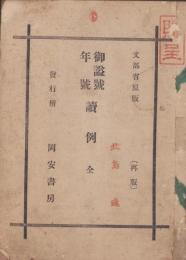 文部省原版
（再版）
御諡號
年號
讀例 全
發行所
岡安書房